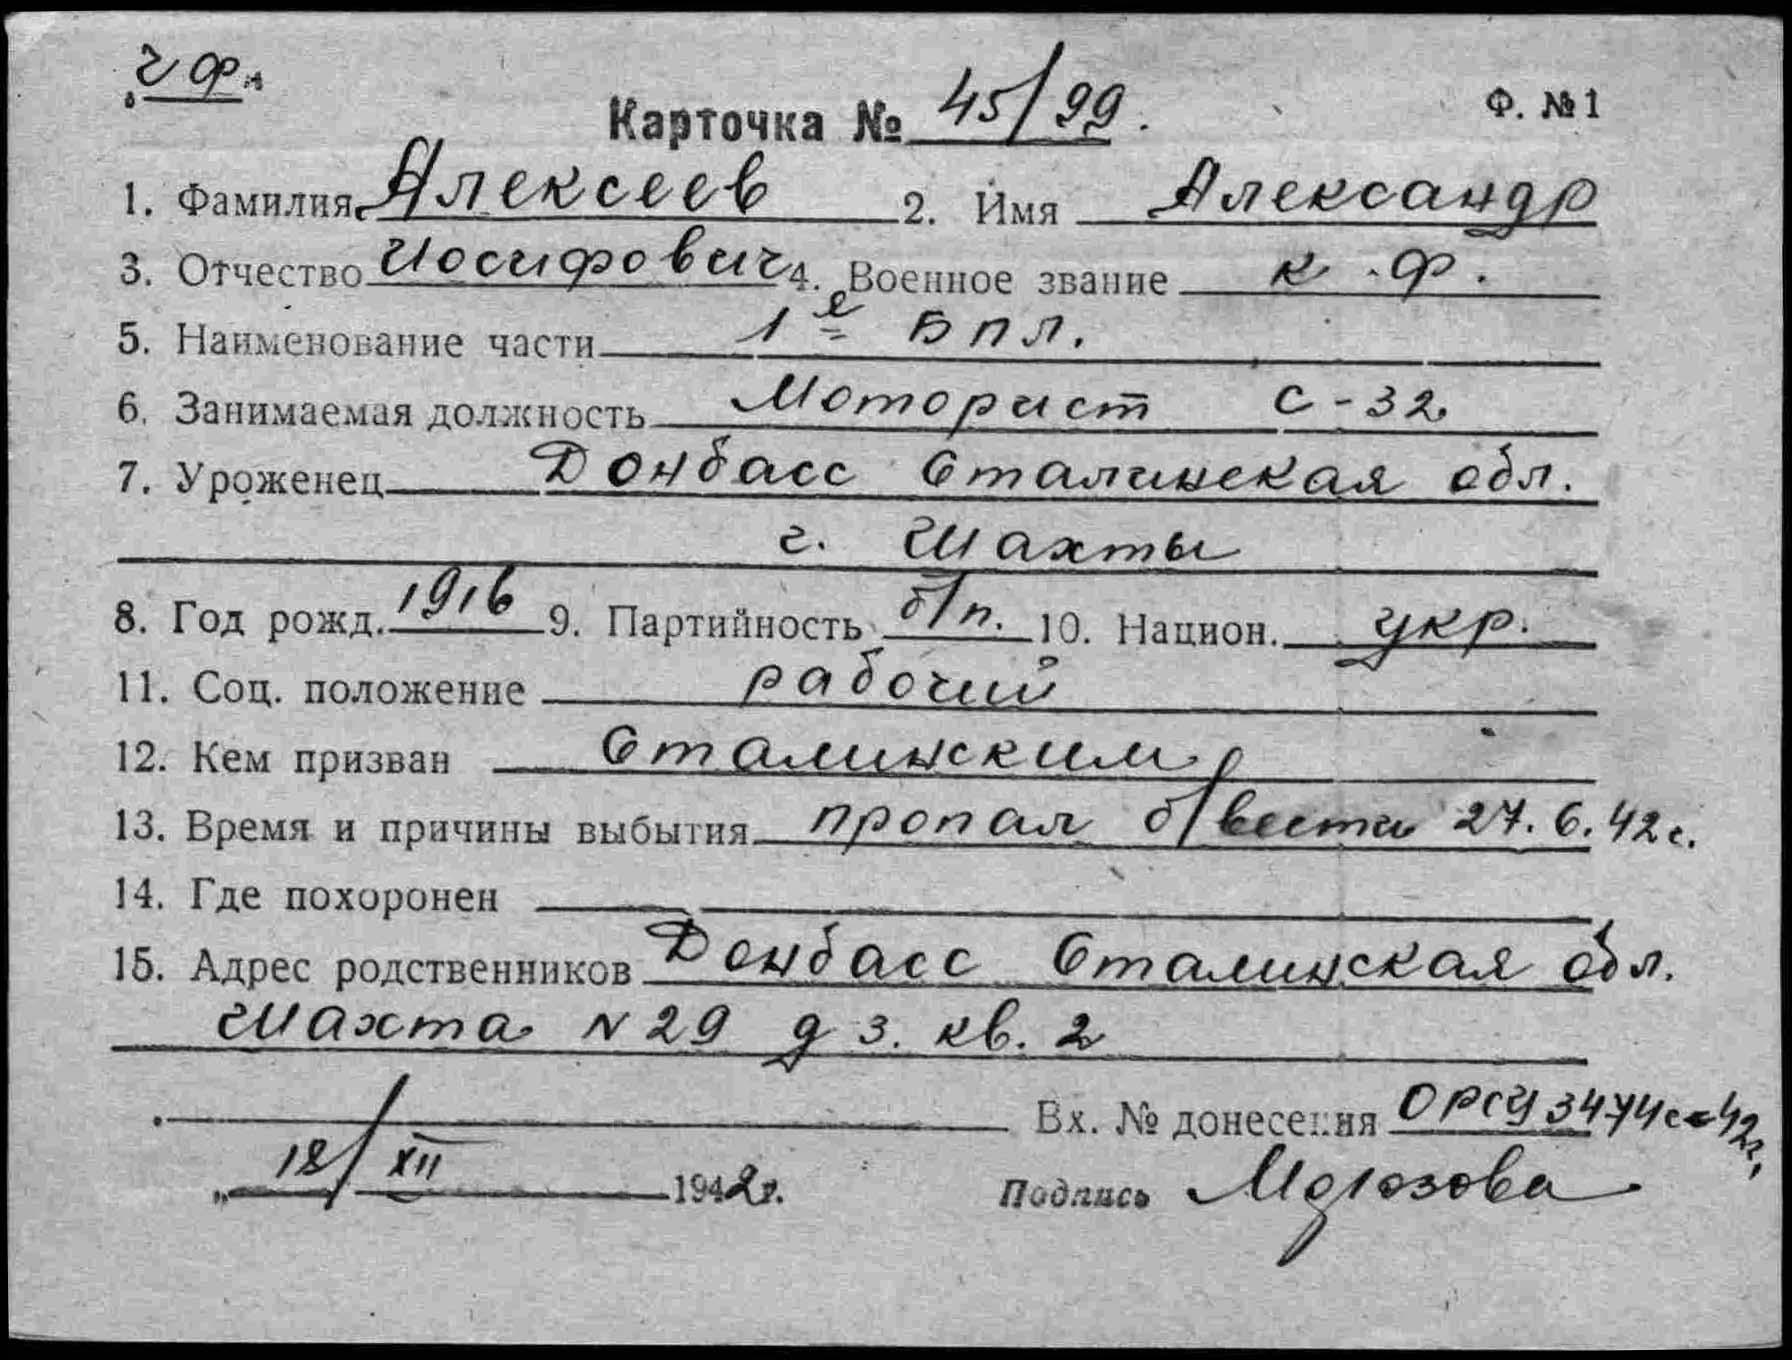 ч ф.
Карточка № 45/99.
Ф. №1
1. Фамилия Алексеев 2. Имя Александр
3. Отчество Иосифович 4. Военное звание к. ф.
5. Наименование части 1е БПЛ.
6. Занимаемая должность Моторист С-32
7. Уроженец Донбасс Сталинская обл.
г. Шахты
8. Год рожд. 1916 9. Партийность б/п. 10. Национ. укр.
11. Соц. положение рабочий
12. Кем призван Сталинским
13. Время и причины выбытия пропал б/вести 27.6.42г.
14. Где похоронен
15. Адрес родственников Донбасс Сталинская обл.
Шахта N 29 д 3. кв. 2
Вх. № донесения ОРСУ 3474с-42г.
12/XII 1942г. Подпись Морозова